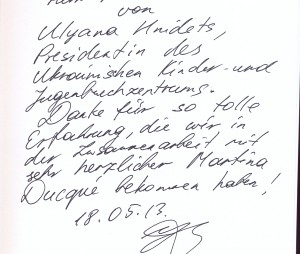 von
Ulyana Hnidets,
Presidentin des
Ukrainischen Kinder- und
Jugenbuchzentrums.
Danke für so tolle
Erfahrung, die wir in
der Zusammenarbeit mit
sehr herzlicher Martina
Ducqué bekommen haben!
18.05.13.